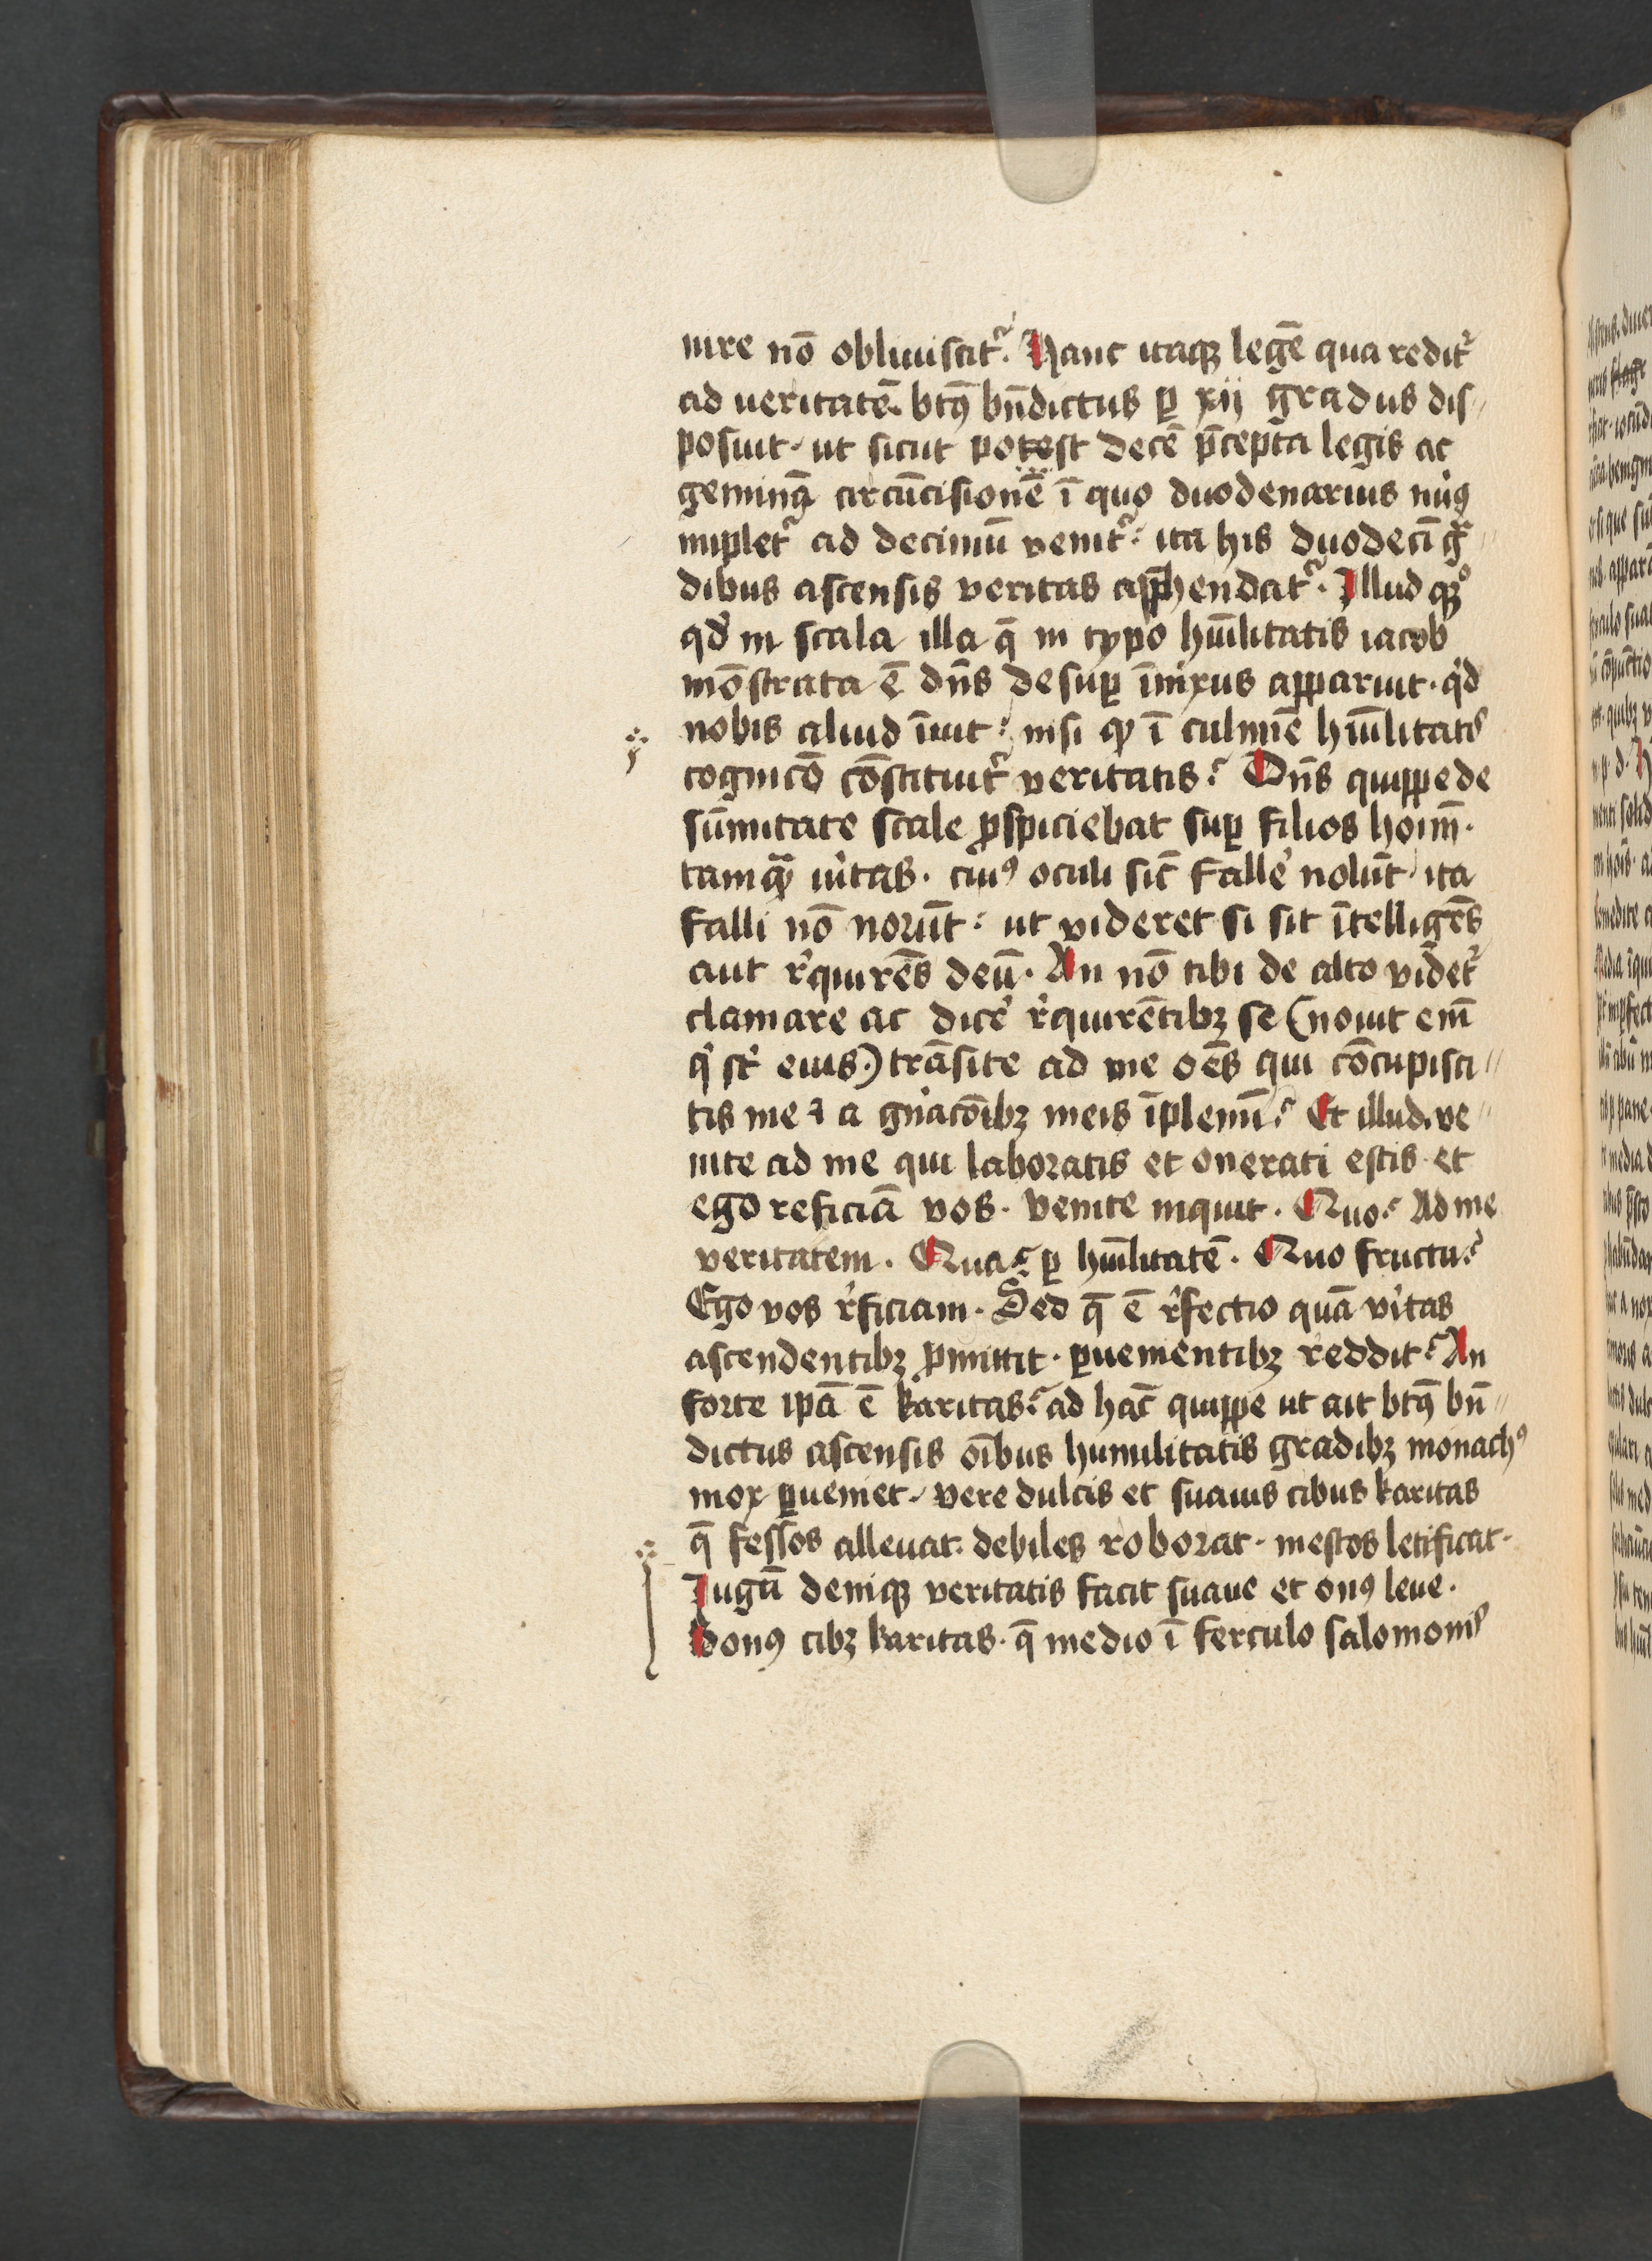 iure nō obliuiscit᷑. Hanc itaqꝫ legē qua redit᷑
ad ueritatē. btꝰ bn̄dictus ꝑ xij gradus dis
posuit. ut sicut potest decē p̄cepta legis ac
geminā circūcisionē ī quo duodenarius nūꝰ
implet᷑ ad decimū venit᷑. ita his duodecī gͣ
dibus ascensis veritas app̄hendat᷑. Illud qꝫ
qd̓ in scala illa q̄ in typo hūilitatis iacob
mōstrata ē dn̄s desuꝑ īnixus apparuit. qͥd
nobis aliud īnuit. nisi qꝫ ī culmīe hūilitatꝭ
cognicō cōstituit᷑ veritatis? Dn̄s quippe de
sūmitate scale ꝓspiciebat suꝑ filios hoīm.
tamqͣꝫ uı̓tas. ciuꝰ oculi sic̄ fallẻ nolūt ita
falli nō norūt. ut videret si sit ītelligēs
aut rͤquirēs deū. An nō tibi de alto videt᷑
clamare ac dicẻ rͤquirētibꝫ se (nouit eīm
qͥ st̓ eius) trāsite ad me oēs qui cōcupisci
tis me ⁊ a gn̓acōibꝫ meis īplemī? Et illud. ve
nite ad me qui laboratis et onerati estis et
ego reficiā vos. Venite inquit. Quo? Ad me
veritatem. Qua? ꝑ hūilitatē. Quo fructu?
Ego vos rͤficiam. Sed q̄ ē rͤfectio quā vı̓tas
ascendentibꝫ ꝓmittit. ꝑuenientibꝫ reddit? An
forte ipā ē karitas? ad hāc quippe ut ait btꝰ bn̄
dictus ascensis oībus humilitatis gradibꝫ monachꝰ
mox ꝑueniet. vere dulcis et suauis cibus karitas
q̄ fessos alleuat. debiles roborat. mestos letificat.
Iugū deniqꝫ veritatis facit suaue et onꝰ leue.
Bonꝰ cibꝫ karitas. q̄ medio ī ferculo salomonꝭ